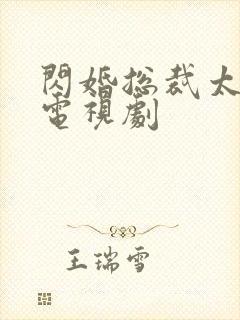 閃婚总裁太
電視劇
王瑞雪